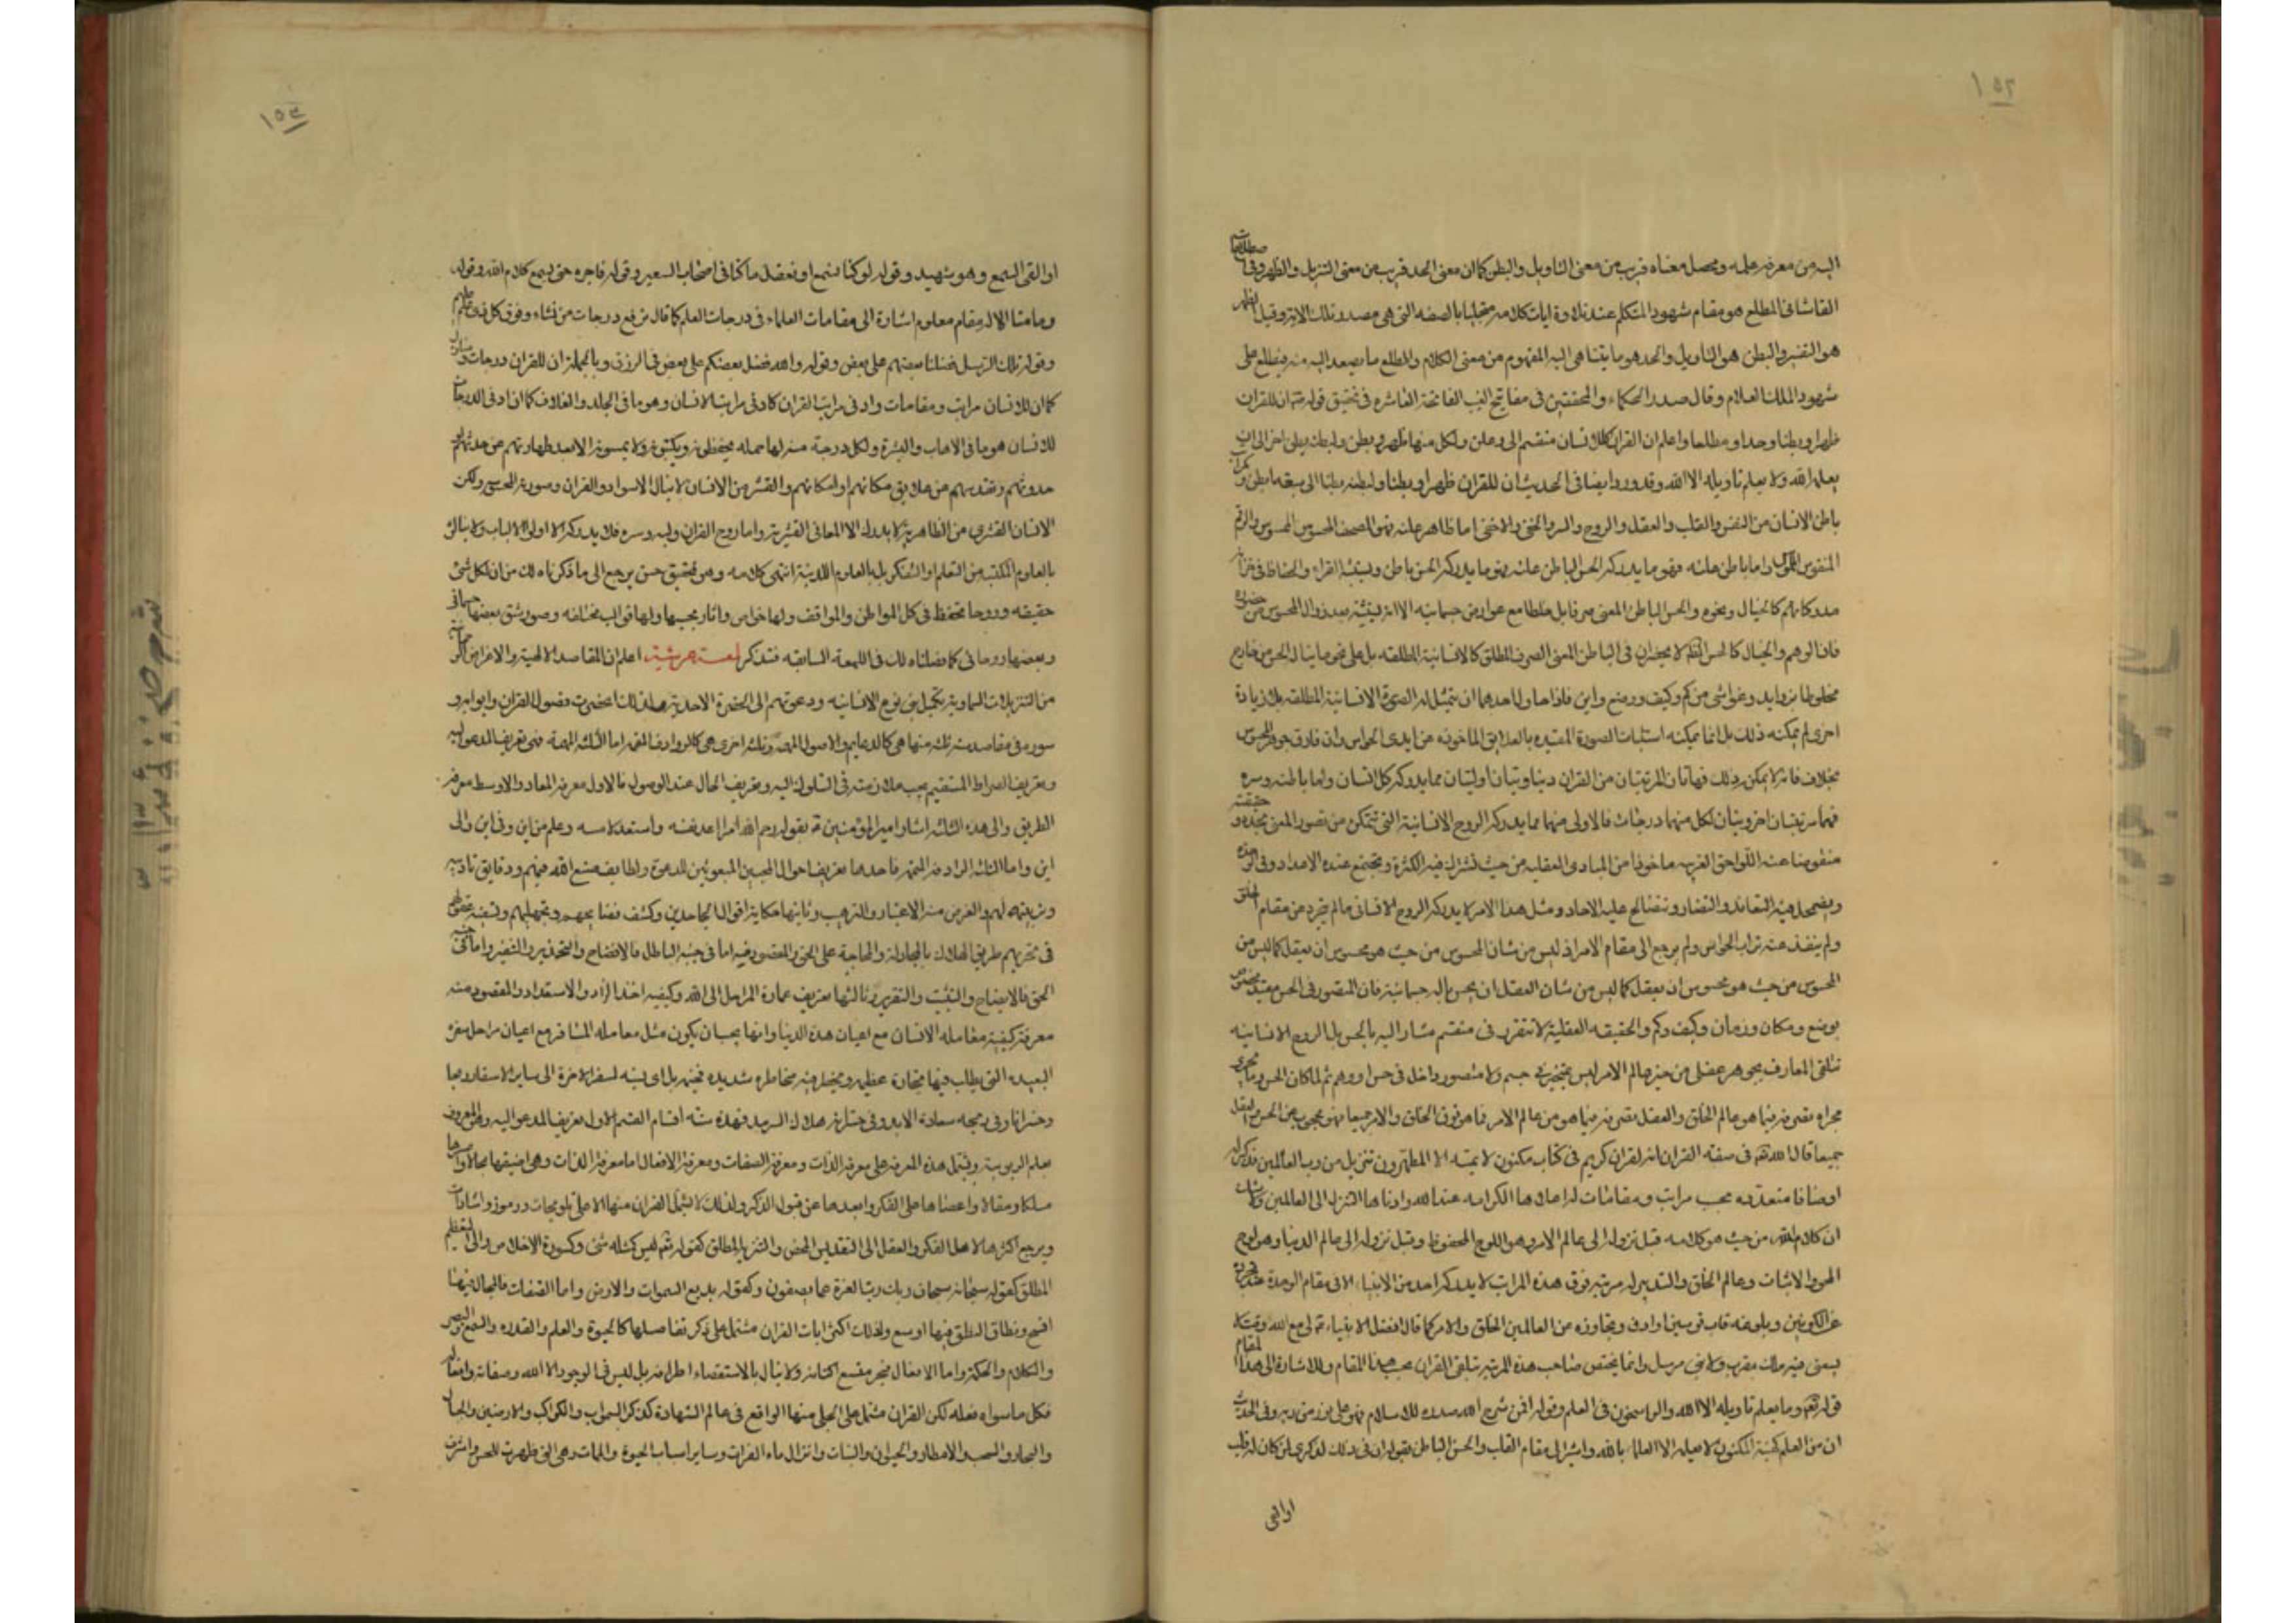 ١٥٢
اليه من معرفة علمه ومحصل معناه قريب من معنى التاويل والبطن كما ان معنى الحد قريب من معنى التنزيل والظهر وفى اصطلاحات
القاشانى المطلع هو مقام شهود المتكلم عند تلاوة ايات كلامه متجليا بالصفه التى هى مصدر تلك الاية وقيل الظهر
هو التفسير والبطن هو التاويل والحد هو ما يتناهى اليه المفهوم من معنى الكلام والمطلع ما يصعد اليه منه فيطلع على
شهود الملك العلام وقال صدر الحكماء والمحققين فى مفاتيح الغيب الفاتحة العاشره فى تحقيق قوله ان للقران
ظهرا وبطنا وحدا ومطلعا واعلم ان القران كالانسان منقسم الى وعلن ولكل منها ظهر وبطن ولبطنه بطن اخر الى ان
يعلمه الله ولا يعلم تاويله الا الله وقد ورد ايضا فى الحديث ان للقران ظهرا وبطنا ولبطنه بطنا الى سبعة ابطن وكمراتب
باطن الانسان من النفس والقلب والعقل والروح والسر والخفى والاخفى اما ظاهر علنه فهو المصحف المحسوس الملموس والرقم
المنقوش واما باطن علنه فهو ما يدركه الحس الباطن علنه فهو ما يدركه الحس باطن ويثبته القراء والحفاظ فى خزانة
مدركاتهم كالخيال ونحوه والحس الباطن المعنى صرفا بل خلطا مع عوارض جسمانيه الا انه يثبته بعد زوال المحسوس عن حضوره
فان الوهم والخيال كالحس لا يحضران فى الباطن المعنى الصرف المطلق كالانسانية المطلقه بل على نحو ما يناله الحس من خارج
مخلوطا بزوايد وغواشى من كم وكيف ووضع واين فاذا حاول احدهما ان يتمثل له الصورة الانسانية المطلقه بلا زيادة
اخرى لم يمكنه ذلك بل انما يمكنه استثبات الصورة المقيده بالعلايق الماخوذه عن ايدى الحواس وان فارق جوهر المحسوس
بخلاف فانه لا يمكن ذلك فهاتان المرتبتان من القران دنياويتان اوليتان مما يدركه كل انسان واما باطنه وسره
فهما مرتبتان اخرويتان لكل منهما درجات فالاولى منهما مما يدركه الروح الانسانية التى تتمكن من تصور المعنى بحده وحقيقته
منفوضا عنه اللواحق الغريبه ماخوذا من المبادى العقليه من حيث تشترك فيه الكثرة وتجتمع عنده الاعداد فى الوحدة
ويضمحل فيه التعاند والتضاد وتتصالح عليه الاحاد ومثل هذا الامر لا يدركه الروح الانسانى ما لم يتجرد عن مقام الخلق
ولم ينفض عنه تراب الحواس ولم يرجع الى مقام الامر اذ ليس من شان المحسوس من حيث هو محسوس ان يعقل كما ليس من
المحسوس من حيث هو محسوس ان يعقل كما ليس من شان العقل ان يحس بالة جسمانية فان المتصور فى الحس مقيد مخصوص
بوضع ومكان وزمان وكيف وكم والحقيقه العقلية لا تتقرر فى منقسم مشار اليه بالحس بل الروح الانسانيه
تتلقى المعارف بجوهر عقلى من حيز عالم الامر ليس بمتحيز فى جسم ولا متصور داخل فى حس او وهم ثم لما كان الحس وما يجرى
مجراه تصرفه فيما هو عالم الخلق والعقل تصرفه فيما هو من عالم الامر فما هو فوق الخلق والامر جميعا فهو محجوب عن الحس والعقل
جميعا قال الله تعالى فى صفه القران انه لقران كريم فى كتاب مكنون لا يمسه الا المطهرون تنزيل من رب العالمين فذكر له
اوصافا متعدده بحسب مراتب ومقامات له اعلاها الكرامه عند الله وادناها التنزل الى العالمين ولا شك
ان كلام الله من حيث هو كلامه قبل نزوله الى عالم الامر وهو اللوح المحفوظ وقبل نزوله الى عالم الدنيا وهو لوح
المحو والاثبات وعالم الخلق والتدبير له مرتبه فوق هذه المراتب لا يدركه احد من الانبياء الا فى مقام الوحدة عند تجرده
عن الكونين وبلوغه قاب قوسين او ادنى وتجاوزه عن العالمين الخلق والامر كما قال افضل الانبياء لى مع الله وقت لا
يسعنى فيه ملك مقرب ولا نبى مرسل وانما يختص صاحب هذه المرتبه بتلقى القران بحسب هذا المقام وللاشارة الى هذا المقام
قوله تعالى وما يعلم تاويله الا الله والراسخون فى العلم وقوله افمن شرح الله صدره للاسلام فهو على نور من ربه وفى الحديث
ان من العلم كهيئة المكنون لا يعلمه الا العلماء بالله واشير الى مقام القلب والحس الباطن بقوله ان فى ذلك لذكرى لمن كان له قلب
او القى
١٥٣
او القى السمع وهو شهيد وقوله لو كنا نسمع او نعقل ما كنا فى اصحاب السعير وقوله فاجره حتى يسمع كلام الله وقوله
وما منا الا له مقام معلوم اشارة الى مقامات العلماء فى درجات العلم كما قال نرفع درجات من نشاء وفوق كل ذى علم عليم
وقوله تلك الرسل فضلنا بعضهم على بعض وقوله والله فضل بعضكم على بعض فى الرزق وبالجملة ان للقران درجات ومنازل
كما ان للانسان مراتب ومقامات وادنى مراتب القران كادنى مراتب الانسان وهو ما فى الجلد والغلاف كما ان ادنى الدرجات
للانسان هو ما فى الاهاب والبشرة ولكل درجة منه لها حمله يحفظونه ويكتبونه ولا يمسونه الا بعد طهارتهم عن حدثهم او
حدوثهم وتقدسهم عن علايق مكانهم او امكانهم والقشر من الانسان لا ينال الا سواد القران وصورته المحسوسه ولكن
الانسان القشرى من الظاهرية لا يدرك الا المعانى القشرية واما روح القران ولبه وسره فلا يدركه الا اولو الالباب ولا ينالونه
بالعلوم المكتسبه من التعلم او التفكر بل بالعلوم اللدنية انتهى كلامه وهو تحقيق حسن يرجع الى ما ذكرناه لك من ان لكل شئ
حقيقه وروحا محتفظ فى كل المواطن والمواقف ولها خواص واثار بحسبها ولها قوالب مختلفه وصور شتى بعضها جسمانى
وبعضها روحانى كما فصلناه لك فى اللمعة السابقه فتذكر لمعة عرشية اعلم ان المقاصد الالهية والاغراض
من التنزيلات السماوية تكميل بنى نوع الانسانيه ودعوتهم الى الحضرة الاحدية ولذلك انحصرت فصول القران وابوابه و
سوره فى مقاصد ستة ثلثة منها هى كالدعايم والاصول المهمة وثلثة اخرى هى كالروادف المتممه اما الثلثة المهمة فهى تعريف المدعو اليه
وتعريف الصراط المستقيم يجب ملازمته فى السلوك اليه وتعريف الحال عند الوصول فالاول معرفة المعاد والاوسط معرفة
الطريق والى هذه الثلثه اشار امير المؤمنين بقوله رحم الله امرا اعد لنفسه واستعد لرمسه وعلم من اين وفى اين والى
اين واما الثلثه الرادفة المتممه فاحدها تعريف احوال المجيبين المبعوثين للدعوة ولطايف صنع الله فيهم ودقايق تاديبه
وتربيته لهم والغرض منه الاعتبار والترغيب وثانيها حكاية اقوال الجاحدين وكشف فضايحهم وتجهيلهم وتسفيه عقولهم
فى تحريهم طريق الهلاك بالمجادلة والمحاجة على الحق والمقصود فيه اما فى جنبه الباطل فالافضاح والتحذير والتنفير واما فى جنبه
الحق فالايضاح والتثبيت والتقرير وثالثها تعريف عمارة المراحل الى الله وكيفيه اخذ الزاد والاستعداد والمقصود منه
معرفة كيفية معامله الانسان مع اعيان هذه الدنيا وانها يجب ان يكون مثل معامله المسافر مع اعيان مراحل سفره
البعيد التى يطلب فيها تجارة عظيمه ويحتمل فيه مخاطره شديده نسبه لسفر الاخرة الى ساير الاسفار
وخسرانا وفى ربحه سعادة الابد وفى خسرانه هلاك السرمد فهذه سته اقسام القسم الاول تعريف المدعو اليه وهو المعروف
بعلم الربوبية ويشتمل هذه المعرفة على معرفة الذات ومعرفة الصفات ومعرفة الافعال اما معرفة الذات وهى اضيقها مجالا واعسرها
مسلكا ومقالا واعصاها على الفكر وابعدها عن قبول الذكر ولذلك لا يشمل القران منها الا على تلويحات ورموز واشارات
ويرجع اكثرها لاهل الفكر والعقل الى التقديس المحض والتنزيه المطلق كقوله تعالى ليس كمثله شئ وكسورة الاخلاص والى التعظيم
المطلق كقوله سبحانه سبحان ربك رب العزة عما يصفون وكقوله بديع السموات والارض واما الصفات فالمجال فيها
افسح ونطاق النطق فيها اوسع ولذلك اكثر ايات القران مشتمل على ذكر تفاصيلها كالحيوة والعلم والقدره والسمع والبصر
والكلام والحكمة واما الافعال فبحر متسع اكنافه ولا ينال بالاستقصاء اطرافه بل ليس فى الوجود الا الله وصفاته وافعاله
فكل ما سواه فعله لكن القران مشتمل على الجلى منها الواقع فى عالم الشهادة كذكر السموات والكواكب والارضين والجبال
والبحار والسحب والامطار والحيوان والنبات وانزال ماء الفرات وساير اسباب الحيوة والممات وهى التى ظهرت للحس واشرف